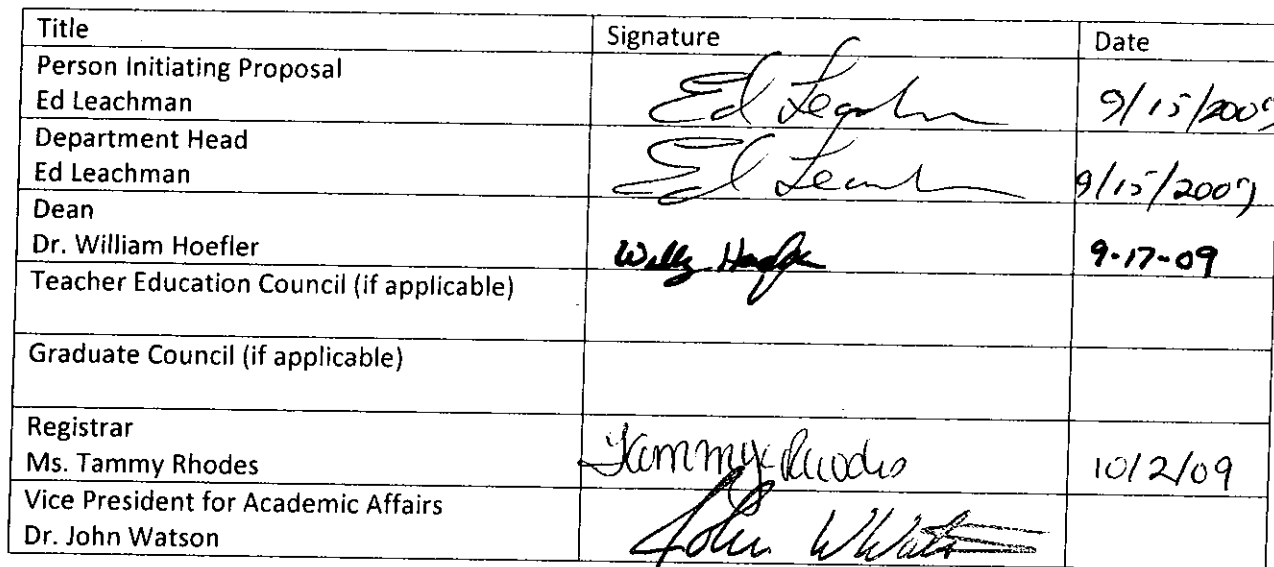 Title Signature Date
Person Initiating Proposal
Ed Leachman Ed Leachman 9/15/2009
Department Head
Ed Leachman Ed Leachman 9/15/2009
Dean
Dr. William Hoefler Willy Hoefler 9-17-09
Teacher Education Council (if applicable)
Graduate Council (if applicable)
Registrar
Ms. Tammy Rhodes Tammy Rhodes 10/2/09
Vice President for Academic Affairs
Dr. John Watson John W Watson